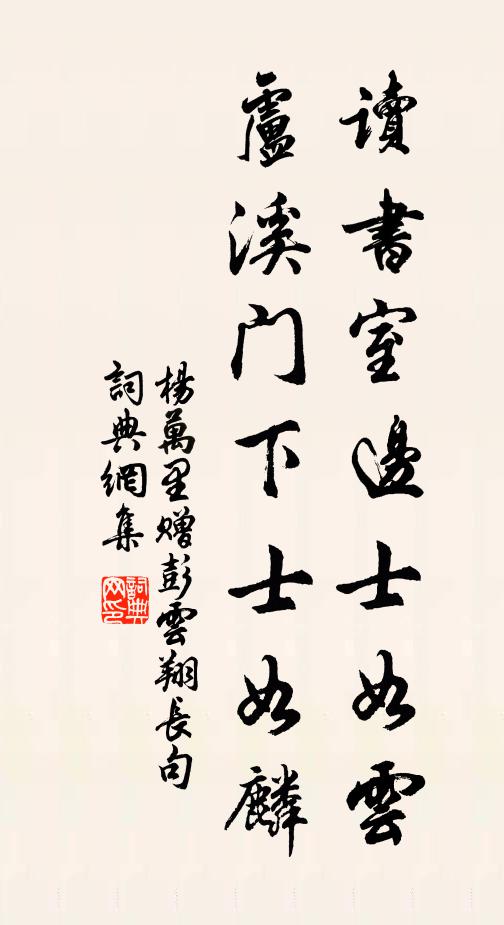 讀書室邊士如雲
盧溪門下士如麟
楊萬里贈彭雲翔長句
詞典網集
詞典網印